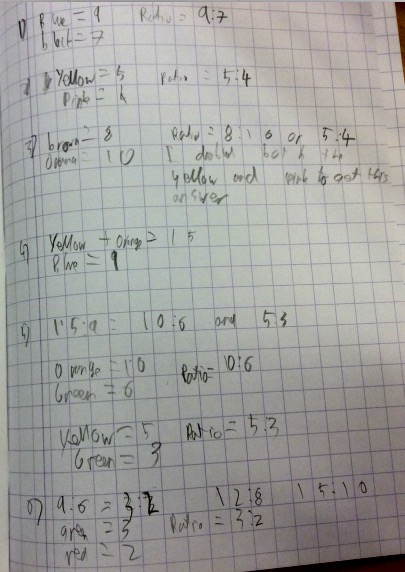 1) Blue = 9 Ratio = 9:7
black = 7
2) Yellow = 5 Ratio = 5:4
Pink = 4
3) brown = 8 Ratio = 8:10 or 5:4
= 10 I doubled both the
yellow and pink to get this
answer
4) Yellow + orange = 15
Blue = 9
5) 15:9 = 10:6 and 5:3
Orange = 10 Ratio = 10:6
Green = 6
Yellow = 5 Ratio = 5:3
Green = 3
6) 9:6 = 3:2 12:8 15:10
green = 3 Ratio = 3:2
red = 2